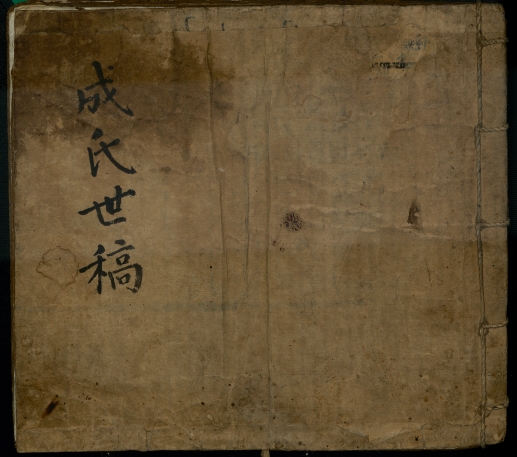 成氏世稿